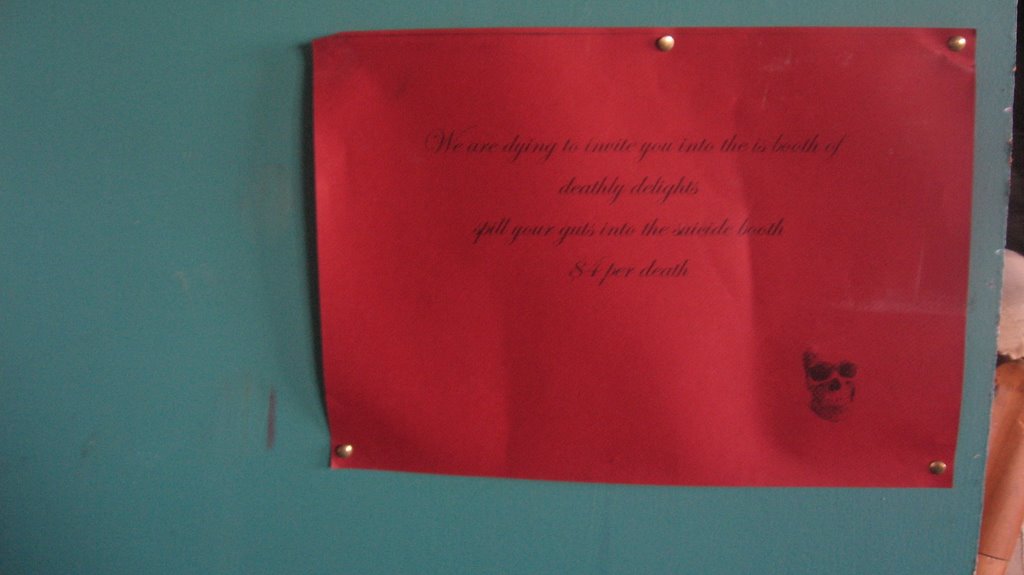 We are dying to invite you into the is booth of
deathly delights
spill your guts into the suicide booth
$4 per death